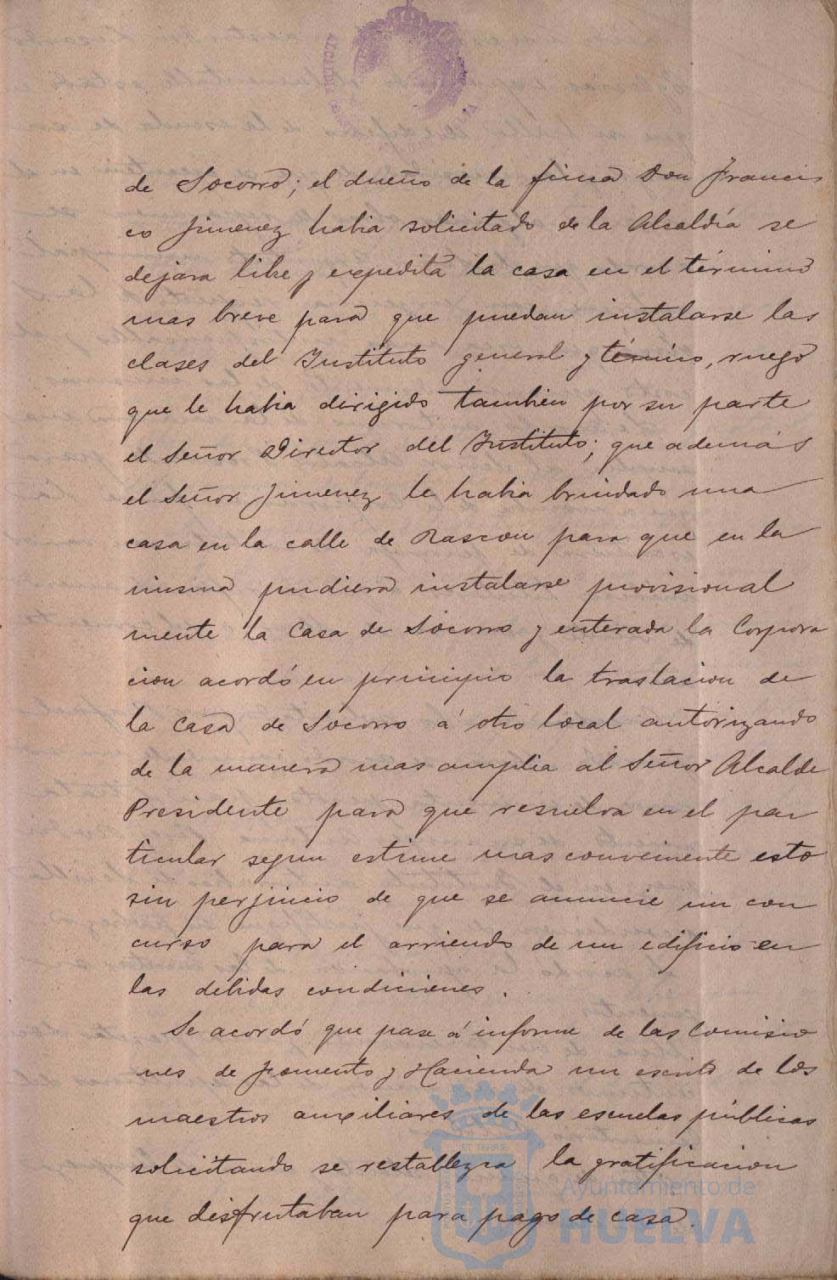 de Socorro; el dueño de la finca Don Francis
co Jimenez habia solicitado de la Alcaldía se
dejara libre y expedita la casa en el término
mas breve para que puedan instalarse las
clases del Instituto general y técnico, ruego
que le habia dirigido tambien por su parte
el Señor Director del Instituto; que además
el Señor Jimenez le habia brindado una
casa en la calle de Rascon para que en la
misma pudiera instalarse provisional
mente la Casa de Socorro y enterada la Corpora
cion acordó en principio la traslacion de
la Casa de Socorro á otro local autorizando
de la manera mas amplia al Señor Alcalde
Presidente para que resuelva en el par
ticular segun estime mas conveniente esto
sin perjuicio de que se anuncie un con
curso para el arriendo de un edificio en
las debidas condiciones.
Se acordó que pase á informe de las Comisio
nes de Fomento y Hacienda un escrito de los
maestros auxiliares de las escuelas públicas
solicitando se restablezca la gratificacion
que disfrutaban para pago de casa.
Ayuntamiento de
HUELVA